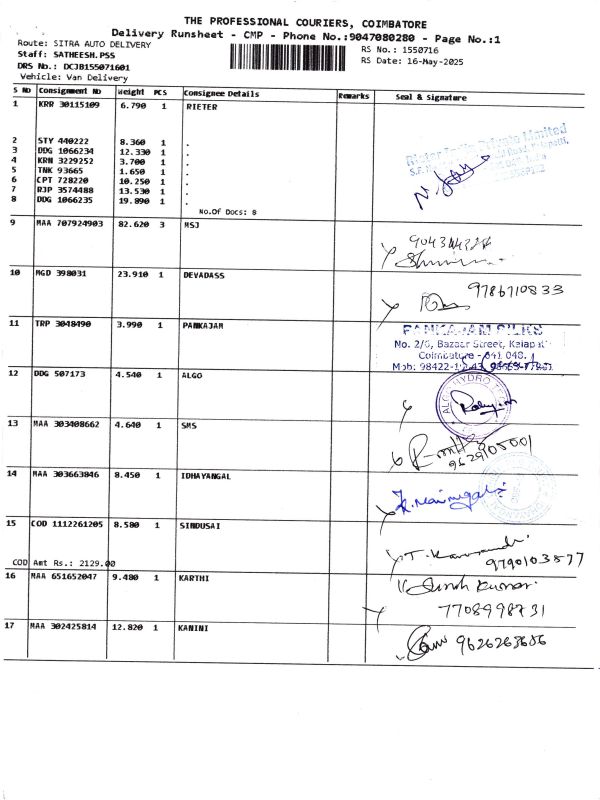 THE PROFESSIONAL COURIERS, COIMBATORE
Delivery Runsheet - CMP - Phone No.:9047080280 - Page No.:1
Route: SITRA AUTO DELIVERY
Staff: SATHEESH.PSS
DRS No.: DCJB155071601
Vehicle: Van Delivery
RS No.: 1550716
RS Date: 16-May-2025
S No Consignment No Weight PCS Consignee Details Remarks Seal & Signature
1 KRR 30115109 6.790 1 RIETER
2 STY 440222 8.360 1 .
3 DDG 1066234 12.330 1 .
4 KRN 3229252 3.700 1 .
5 TNK 93665 1.650 1 .
6 CPT 728220 10.250 1 .
7 RJP 3574488 13.530 1 .
8 DDG 1066235 19.890 1 .
No.Of Docs: 8
Rieter India Private Limited
9 MAA 707924903 82.620 3 MSJ
10 MGD 398031 23.910 1 DEVADASS
9786710833
11 TRP 3048490 3.990 1 PANKAJAM
PANKAJAM SILKS
No. 2/6, Bazaar Street, Kalapatti
Coimbatore - 641 048.
Mob: 98422-
12 DDG 507173 4.540 1 ALGO
ALGO HYDRO
13 MAA 303408662 4.640 1 SMS
9629105001
14 MAA 303663846 8.450 1 IDHAYANGAL
15 COD 1112261205 8.580 1 SINDUSAI
9790103877
COD Amt Rs.: 2129.00
16 MAA 651652047 9.480 1 KARTHI
Kumar
7708998731
17 MAA 302425814 12.820 1 KANINI
9626263686